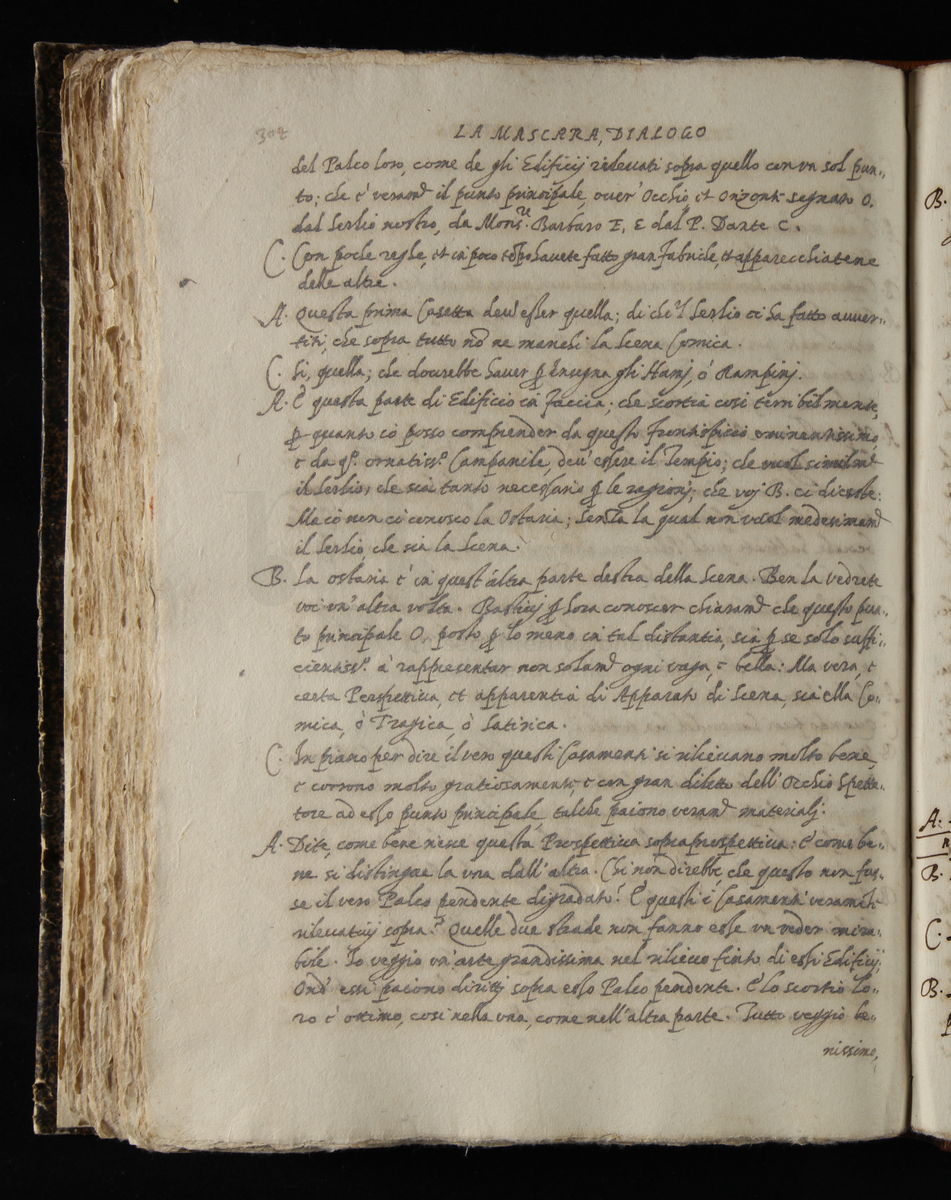 304
LA MASCARA, DIALOGO
del Palco loro, come de gli Edificij rileuati sopra quello con vn sol pun-
to; che è veramte il punto principale, ouer' Occhio et Orizonte segnato O.
dal Serlio nostro, da Monsr. Barbaro F, E dal P. Dante C.
C. Con poche regle, et in poco tempo hauete fatto gran fabriche, et apparecchiatene
delle altre.
A. Questa prima Casetta deu' esser quella; di che 'l Serlio ci ha fatto auuer-
titi, che sopra tutto nō ne manchi la Scena Comica.
C. Si, quella; che dourebbe hauer p insegna gli Hami, ò Rampini.
A. E questa parte di Edificio in faccia; che scortia cosi terribilmente,
p quanto io posso comprender da questo frontispicio eminentissimo,
e da qo. ornatisso. Campanile, deu' essere il Tempio; che vuol similmte
il Serlio, che sia tanto necessario p le ragioni, che voi B. ci diceste.
Ma io non ci conosco la Ostaria; senza la qual non vuol medesimamte
il Serlio, che sia la Scena.
B. La ostaria è in quest' altra parte destra della Scena. Ben la vedrete
voi vn' altra volta. Bastiui p hora conoscer chiaramte che questo pun-
to principale O, posto p lo meno in tal distantia, sia p se solo suffi-
cientisso. à rappresentar non solamte ogni vaga, e bella: Ma vera, e
certa Perspettiua, et apparentia di Apparato di Scena, sia ella Co-
mica, ò Tragica, ò Satirica.
C. In piano per dire il vero questi Casamenti si rilieuano molto bene,
e corrono molto gratiosamente e con gran diletto dell' Occhio Spetta-
tore ad esso punto principale, talche paiono veramte materiali.
A. Dite, come bene riesce questa Prospettiua sopra prospettiua: e come be-
ne si distingue la vna dall' altra. Chi non direbbe, che questo non fus-
se il vero Palco pendente digradato? E questi i Casamenti veramente
rileuatiui sopra? Quelle due strade non fanno esse vn veder mira-
bile. Io veggio vn' arte grandissima nel rilieuo finto di essi Edificij;
Ond' essi paiono diritti sopra esso Palco pendente. E lo scortio lo-
ro è ottimo, cosi nella vna, come nell' altra parte. Tutto veggio be-
nissimo,
B.
A.
B.
C
B.